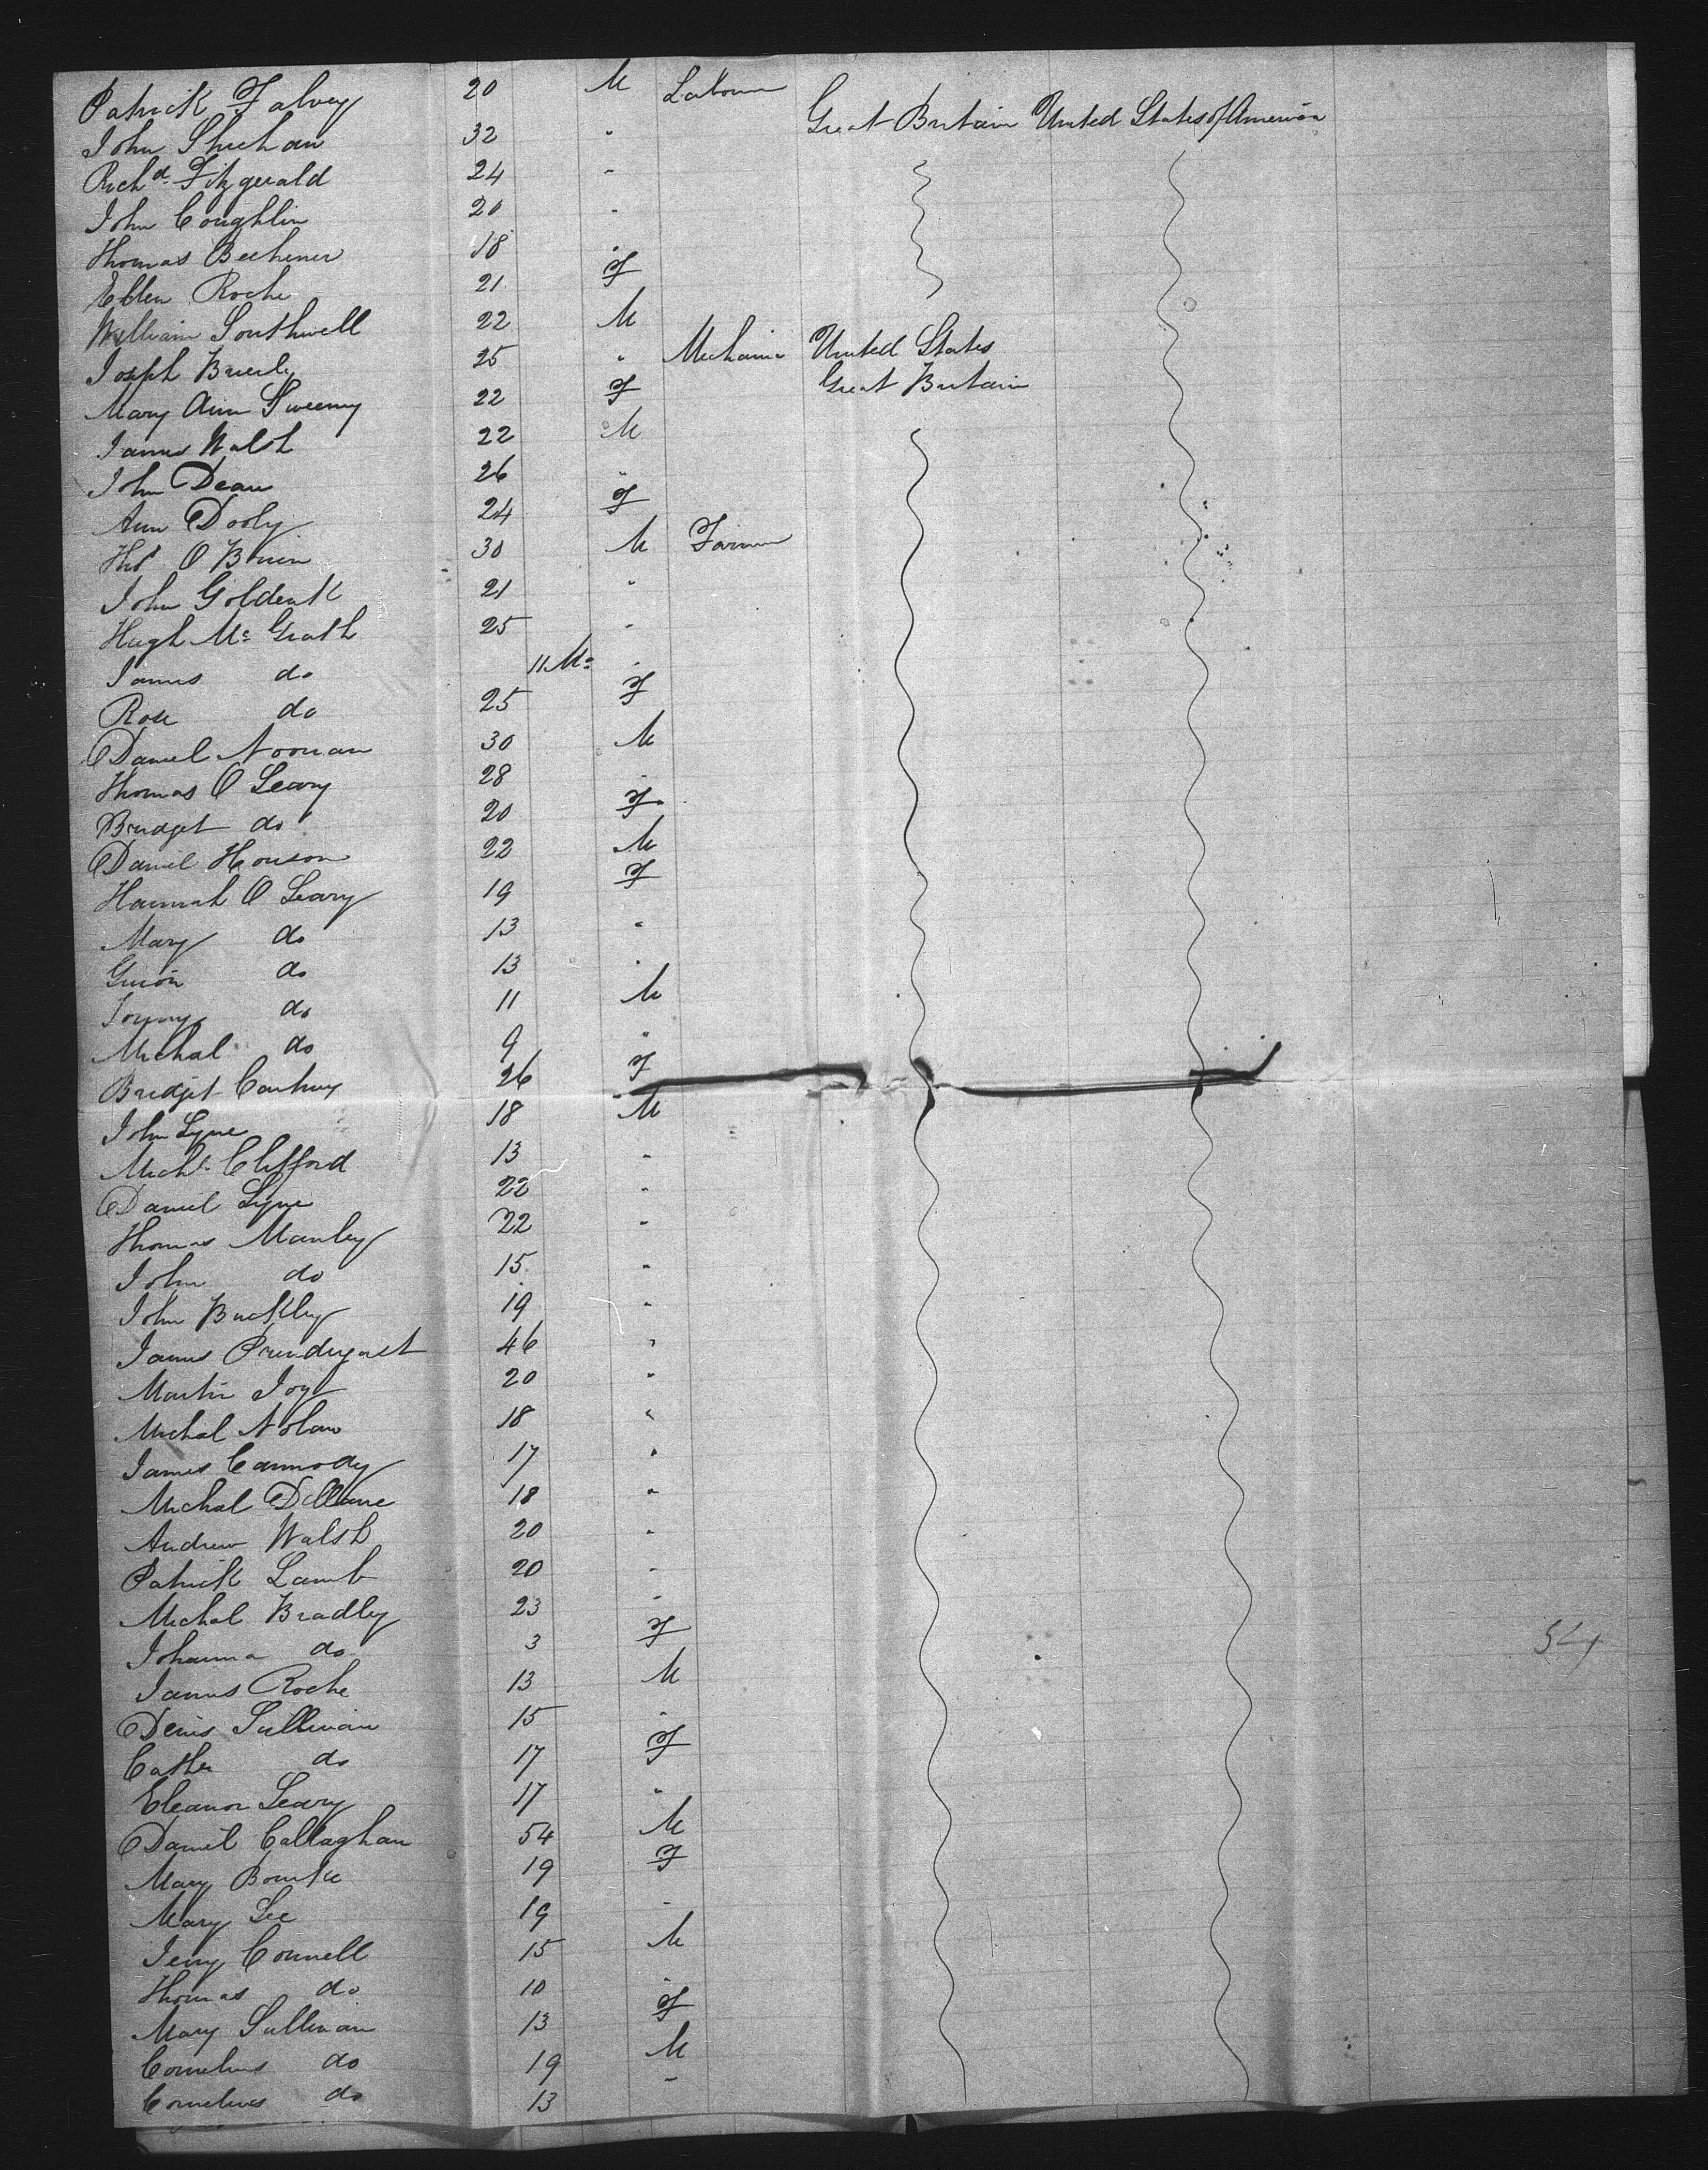 Patrick Falvey 20 M Labourer Great Britain United States of America
John Shehan 32 "
Richd Fitzgerald 24 "
John Coughlin 20 "
Thomas 18 "
Ellen Roche 21 F
William Southwell 22 M
Joseph 25 " Mechanic United States
Mary Ann Sweeny 22 F Great Britain
James Walsh 22 M
John Dean 26 "
Ann Dooly 24 F
Thos O Brien 30 M Farmer
John 21 "
Hugh Mc Grath 25 "
James do 11 Mo "
Rose do 25 F
Daniel Noonan 30 M
Thomas O Leary 28 "
Bridget do 20 F
Daniel Houson 22 M
Hannah O Leary 19 F
Mary do 13 "
do 13 "
do 11 M
Michal do 9 "
Bridget 26 F
John Lyne 18 M
Michl Clifford 13 "
Daniel Lyne 22 "
Thomas Manley 22 "
John do 15 "
John Buckley 19 "
James Prendergast 46 "
Martin Joy 20 "
Michal Nolan 18 "
James Carmody 17 "
Michal Dillane 18 "
Andrew Walsh 20 "
Patrick Lamb 20 "
Michal Bradley 23 "
Johanna do 3 F
James Roche 13 M
Denis Sullivan 15 "
Cathe do 17 F
Eleanor Leary 17 "
Daniel Callaghan 54 M
Mary Bourke 19 F
Mary Lee 19 "
Jerry Connell 15 M
Thomas do 10 "
Mary Sullivan 13 F
Cornelius do 19 M
Cornelius do 13 "
54